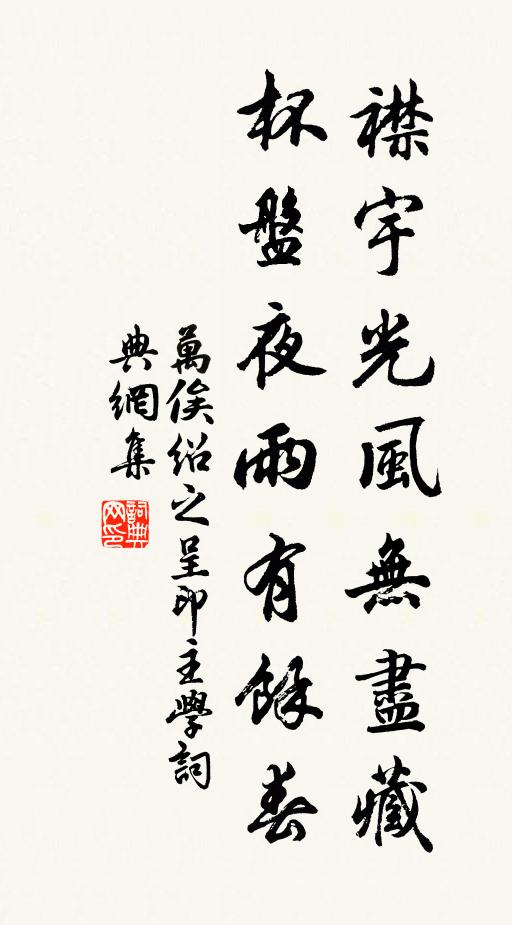 襟宇光風無盡藏
杯盤夜雨有餘春
萬俟紹之呈印主學詞
典網集
詞典網印